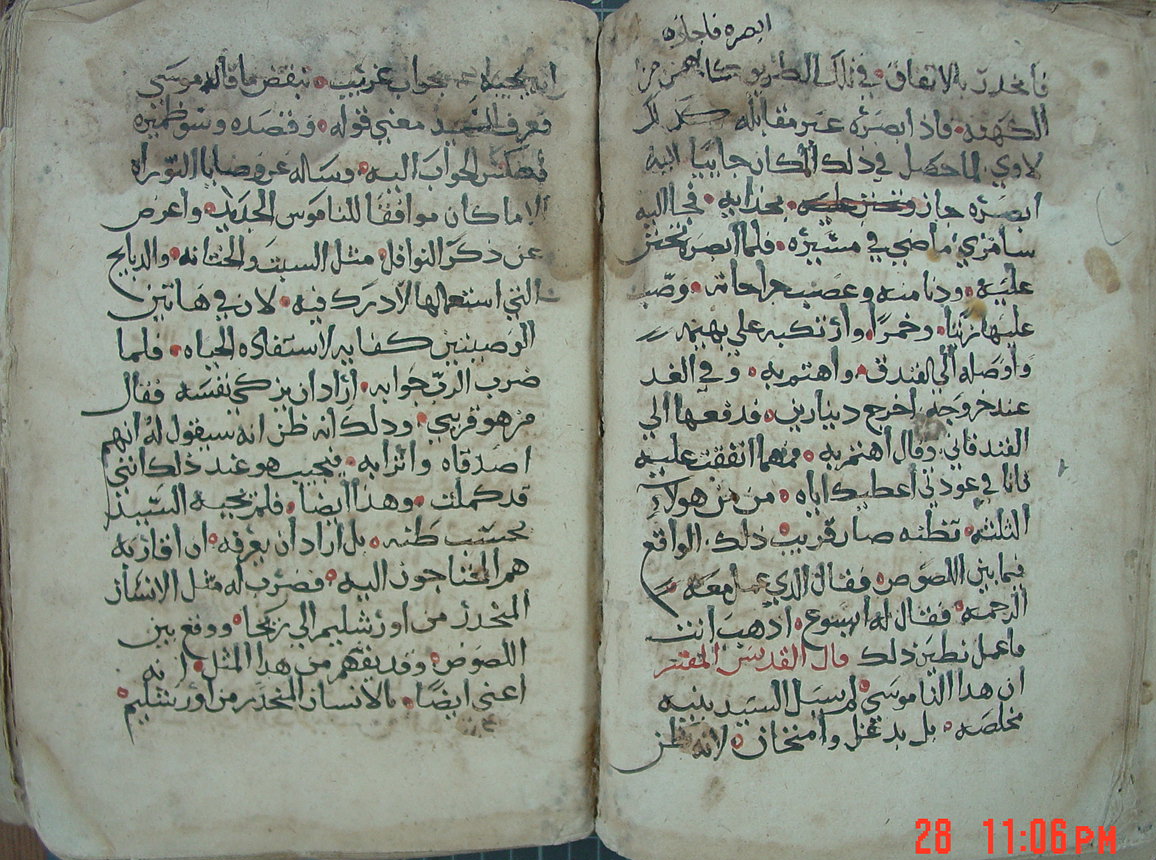 ابصره فاجازه
فانحدر بالاتفاق في تلك الطريق كاهن من
الكهنه فاذ ابصره عبر مقابله كذلك
لاوي لما حصل في ذلك المكان جا اليه
ابصره جاز بحذايه فجا اليه
سامري ماضي في مسيره فلما ابصره تحنن
عليه ودنا منه وعصب جراحاته وصب
عليها زيتا وخمرا واركبه علي بهيمه
واوصله الي الفندق واهتم به وفي الغد
عند خروجه اخرج دينارين فدفعها الي
الفندقاني وقال اهتم به فمهما انفقت عليه
فانا في عودتي اعطيك اياه من من هولاي
الثلثه تظنه صار قريب ذلك الواقع
فيما بين اللصوص فقال الذي عمل معه
الرحمه فقال له ايسوع اذهب انت
فاعمل نظير ذلك قال القديس المفسر
ان هذا الناموسي لم يسل السيد بنيه
مخلصه بل بدغل وامتحان لانه ظن
انه يجيبه جواب غريب ينقض ما قاله موسي
فعرف السيد معني قوله وقصده وسو ضميره
فعكس الجواب اليه وساله عن وصايا التوراه
الا ما كان موافقا للناموس الجديد واعرض
عن ذكر النوافل مثل السبت والختانه والدبايح
التي استعمالها لا درك فيه لان في هاتين
الوصيتين كفايه لاستفاده الحياه فلما
ضرب الرب جوابه اراد ان يزكي نفسه فقال
من هو قريبي ودلك انه ظن انه سيقول له انهم
اصدقاه واترابه فيجيب هو عند ذلك انني
قد كملت وهذا ايضا فلم يجيبه السيد
بحسب ظنه بل اراد ان يعرفه ان اقاربه
هم المحتاجون اليه فضرب له مثل الانسان
المنحدر من اورشليم الي ريحا ووقع بين
اللصوص وقد يفهم من هدا المثل انه
اعني ايضا بالانسان المنحدر من اورشليم
28 11:06 PM